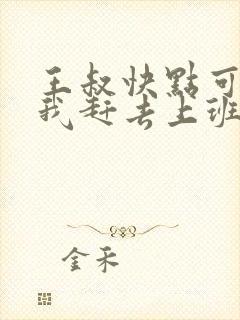 王叔快點可
我赶去上班
金禾